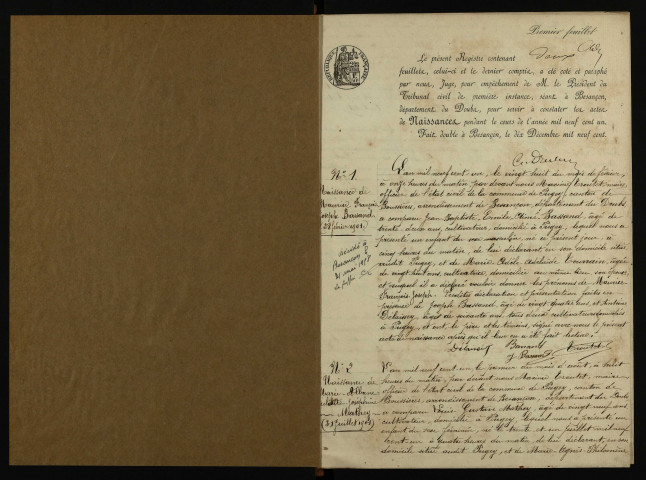 Premier feuillet
Le présent Registre contenant deux
feuillets, celui-ci et le dernier compris, a été coté et paraphé
par nous, Juge, pour empêchement de M. le Président du
Tribunal civil de première instance, séant à Besançon,
département du Doubs, pour servir à constater les actes
de Naissances pendant le cours de l'année mil neuf cent un.
Fait double à Besançon, le dix Décembre mil neuf cent.
RÉPUBLIQUE FRANÇAISE
No 1
Naissance de
Maurice François
Joseph Bassand
28 février 1901
décédé à
Besançon le
21 mai 1978
L'an mil neuf cent un, le vingt huit du mois de février,
à onze heures du matin, par devant nous Maxime, maire,
officier de l'état civil de la commune de Pugey, canton de
Boussières, arrondissement de Besançon, département du Doubs
a comparu Jean Baptiste, Emile Bassand, âgé de
trente deux ans, cultivateur, domicilié à Pugey, lequel nous a
présenté un enfant du sexe masculin, né ce présent jour, à
cinq heures du matin, de lui déclarant, en son domicile situé
audit Pugey, et de Marie Adelaïde, âgée
de vingt huit ans, cultivatrice, domiciliée au même lieu, son épouse,
et auquel il a déclaré vouloir donner les prénoms de Maurice
François Joseph. Lesdites déclaration et présentation faites en
présence de Joseph Bassand, âgé de vingt quatre ans, et
âgé de cinquante ans, tous deux cultivateurs domiciliés
à Pugey, et ont le père et les témoins, signé avec nous le présent
acte de naissance après que il leur en a été fait lecture.
Bassand
J. Bassand
No 2
Naissance de
Marie
Joséphine
Mathey
(31 juillet 1901)
L'an mil neuf cent un, le premier du mois d'août, à huit
heures du matin, par devant nous Maxime, maire
officier de l'état civil de la commune de Pugey, canton de
Boussières, arrondissement de Besançon, département du Doubs
a comparu Gustave Mathey, âgé de vingt neuf ans
cultivateur, domicilié à Pugey, lequel nous a présenté un
enfant du sexe féminin, né le trente et un juillet mil neuf
cent un à quatre heures du matin, de lui déclarant, en son
domicile situé audit Pugey, et de Marie Agnès Philomène